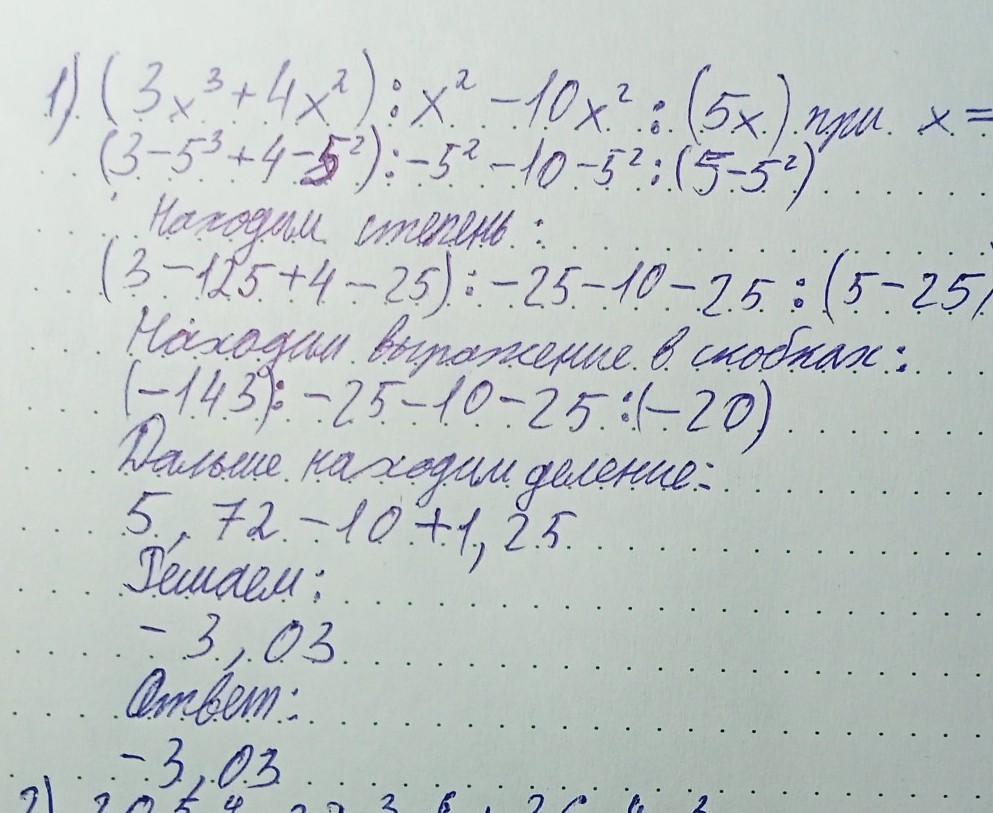 1) (3x³+4x²):x²-10x²:(5x) при x=
(3-5³+4-5²):-5²-10-5²:(5-5²)
Находим степень:
(3-125+4-25):-25-10-25:(5-25)
Находим выражение в скобках:
(-143):-25-10-25:(-20)
Дальше находим деление:
5,72-10+1,25
Решаем:
-3,03
Ответ:
-3,03
2)